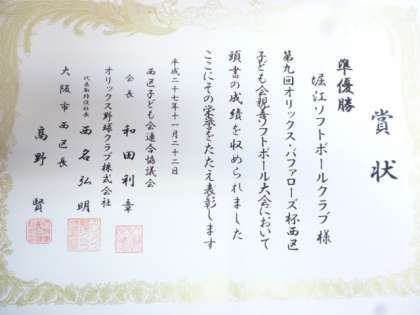 賞状
準優勝
堀江ソフトボールクラブ 様
第九回オリックス・バファローズ杯西区
子ども会親善ソフトボール大会において
頭書の成績を収められました
ここにその栄誉をたたえ表彰します
平成二十七年十一月二十二日
西区子ども会連合協議会
会長 和田利章
オリックス野球クラブ株式会社
代表取締役社長 西名弘明
大阪市西区長 高野賢